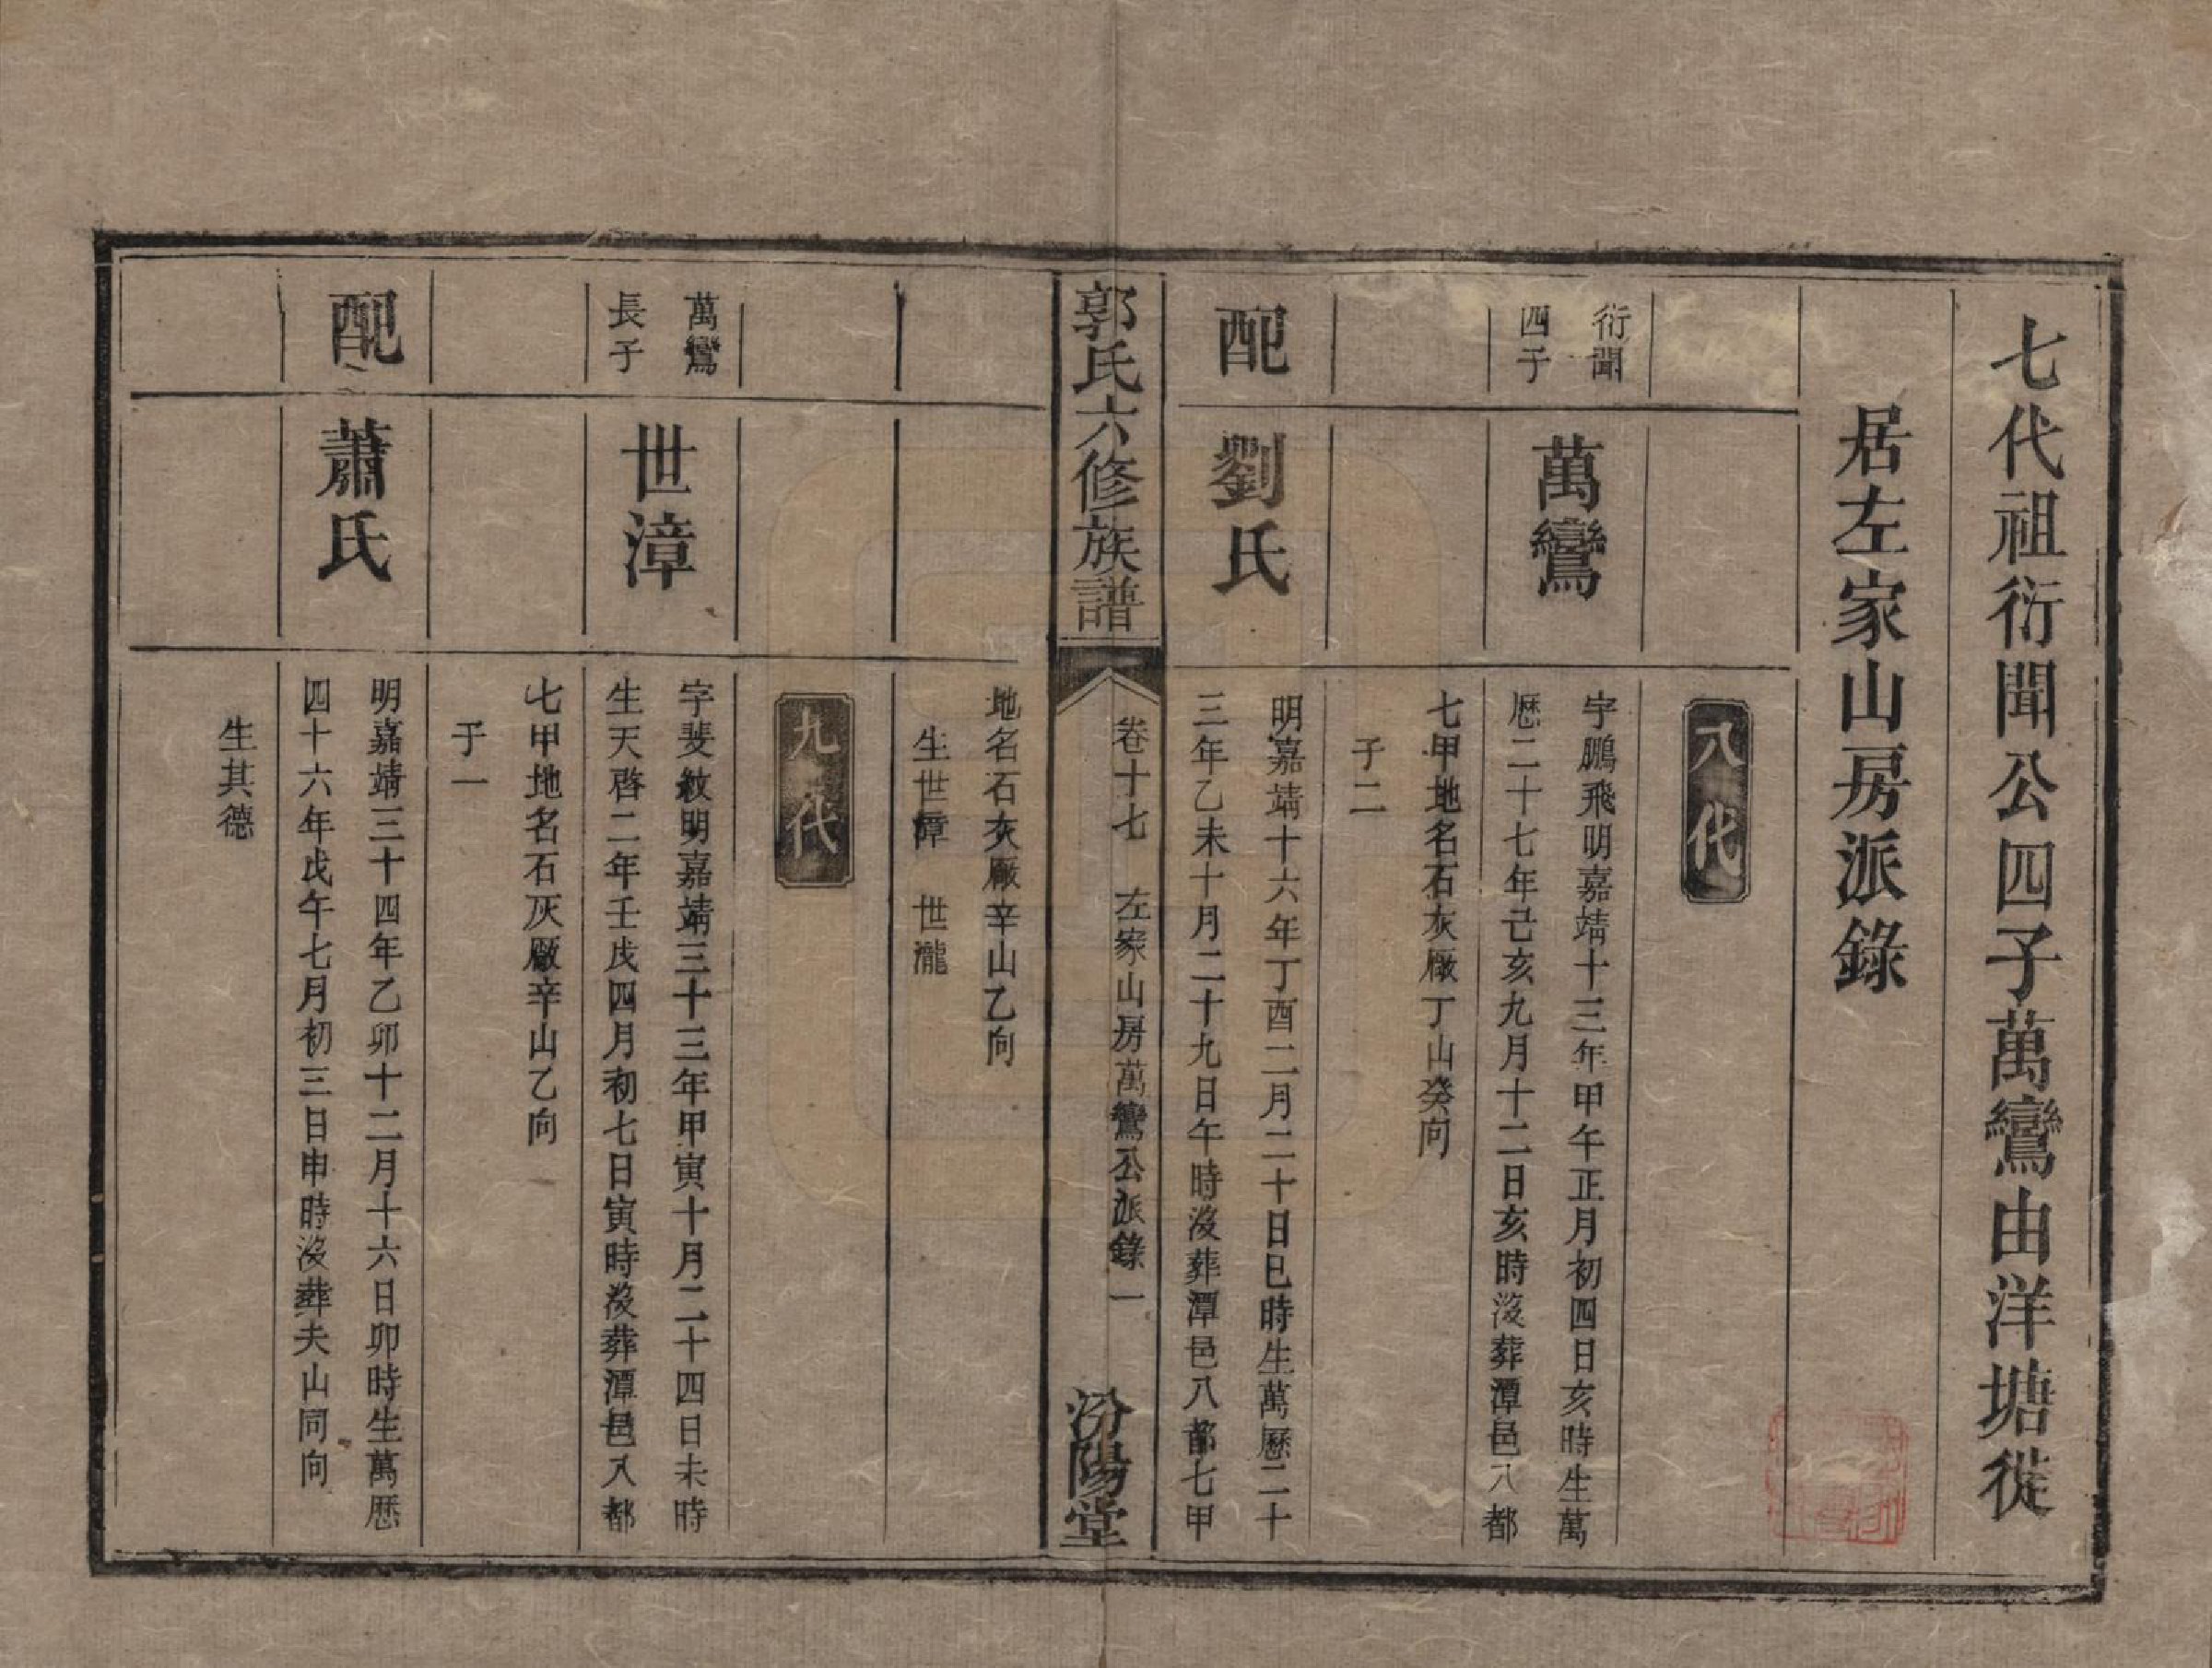 七代祖衍聞公四子萬鸞由洋塘徙
居左家山房派錄
八代
衍聞
四子
萬鸞
字鵬飛明嘉靖十三年甲午正月初四日亥時生萬
歷二十七年己亥九月十二日亥時沒葬潭邑八都
七甲地名石灰厰丁山癸向
子二
配
劉氏
明嘉靖十六年丁酉二月二十日巳時生萬歷二十
三年乙未十月二十九日午時沒葬潭邑八都七甲
郭氏六修族譜
卷十七 左家山房萬鸞公派錄 一
汾陽堂
地名石灰厰辛山乙向
生世漳 世瀧
九代
萬鸞
長子
世漳
字斐紋明嘉靖三十三年甲寅十月二十四日未時
生天啓二年壬戌四月初七日寅時沒葬潭邑八都
七甲地名石灰厰辛山乙向
子一
配
蕭氏
明嘉靖三十四年乙卯十二月十六日卯時生萬歷
四十六年戊午七月初三日申時沒葬夫山同向
生其德